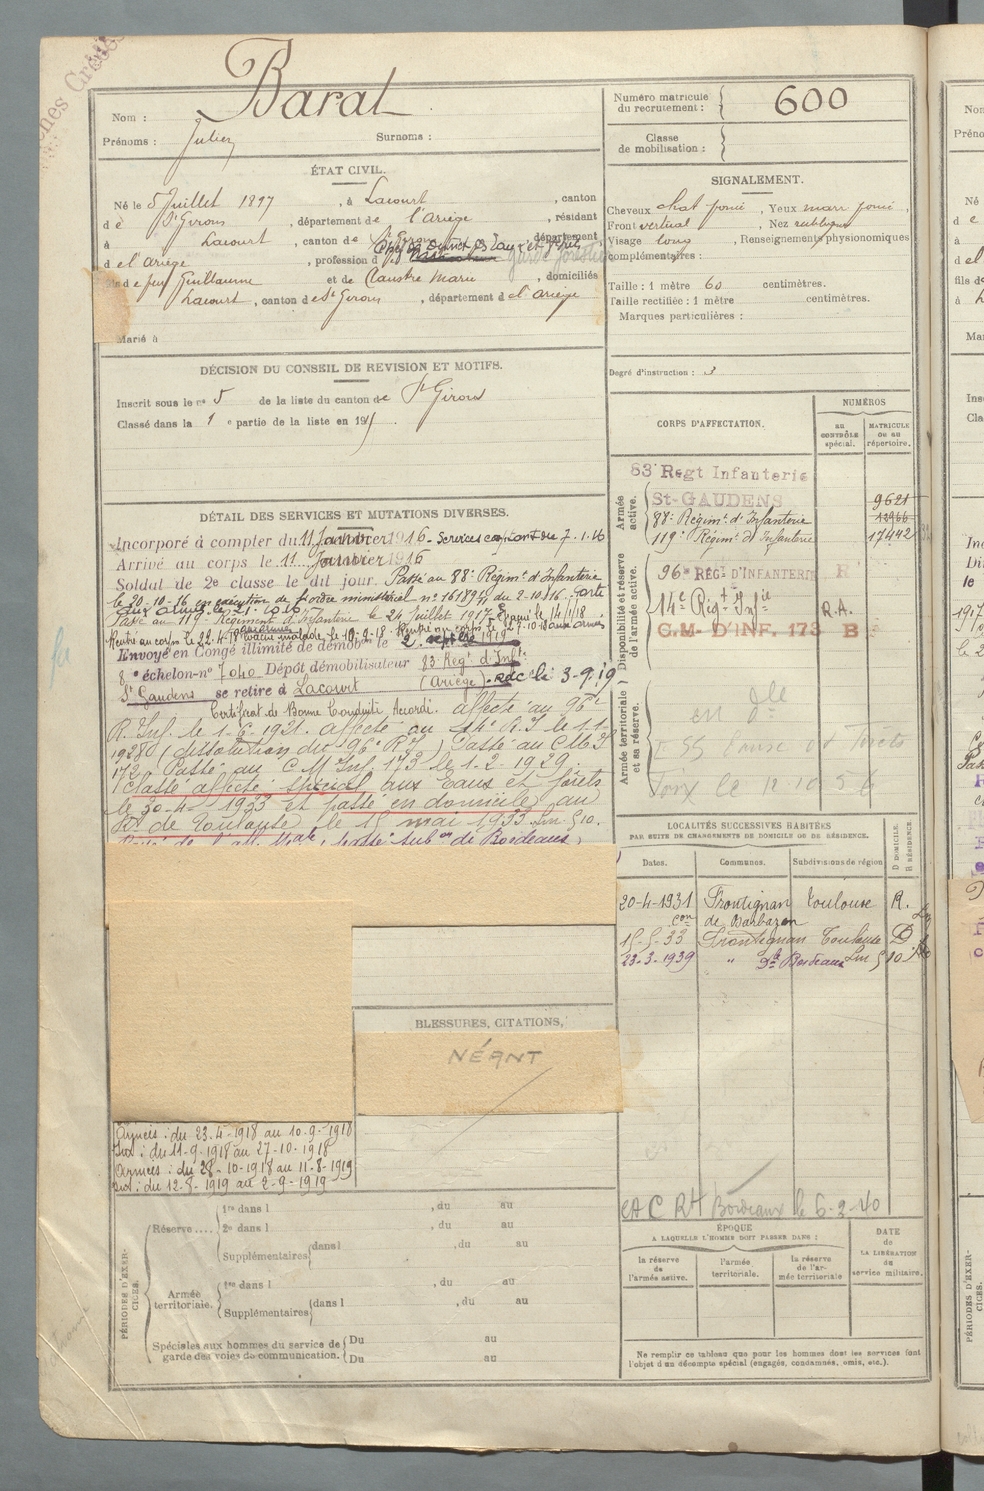 Nom : Barat
Prénoms : Julien Surnoms :
Numéro matricule du recrutement : 600
Classe de mobilisation :
ÉTAT CIVIL.
Né le 5 Juillet 1897, à Lacourt, canton
de St Girons, département de l'Ariège, résidant
à Lacourt, canton de St Girons, département
de l'Ariège, profession de garde forestier
fils de feu Guillaume et de Claustre Marie, domiciliés
Lacourt, canton de St Girons, département de l'Ariège
Marié à
SIGNALEMENT.
Cheveux chat foncé, Yeux marr foncé,
Front vertical, Nez
Visage long, Renseignements physionomiques
complémentaires :
Taille : 1 mètre 60 centimètres.
Taille rectifiée : 1 mètre centimètres.
Marques particulières :
Degré d'instruction : 3
DÉCISION DU CONSEIL DE REVISION ET MOTIFS.
Inscrit sous le n° 5 de la liste du canton de St Girons
Classé dans la 1e partie de la liste en 191
DÉTAIL DES SERVICES ET MUTATIONS DIVERSES.
Incorporé à compter du 11 Janvier 1916. Services comptent du 7-1-16
Arrivé au corps le 11 Janvier 1916
Soldat de 2e classe le dit jour. Passé au 88e Régimt d'Infanterie
le 20-10-16 en exécution de l'ordre ministériel n° du 2-10-16. Parti
aux armées le
Passé au 119e Régiment d'Infanterie le 24 Juillet 1917. Evacué le 14/1/18
Rentré au corps le 22-4-18 Evacué malade le 10-9-18. Rentré au corps le 27-10-18 aux armées
Envoyé en Congé illimité de démob. le 2 septbre 1919
8e échelon n° 7040 Dépôt démobilisateur 83 Régt d'Infie
St Gaudens se retire à Lacourt (Ariège). Rdc le 3-9-19
Certificat de Bonne Conduite Accordé. affecté au 96e
R. Inf. le 1-6-1921. affecté au 14e R.I le 1.1.
1928 (dissolution du 96e R.I) Passé au CM I
172. Passé au C.M Inf. 173 le 1-2-1929.
Classé affecté spécial aux Eaux et forêts
le 30-4-1933 et passé en domicile au
Rt de Toulouse le 15 mai 1933 Lm 510.
passé subon de Bordeaux,
CORPS D'AFFECTATION.
NUMÉROS
au CONTRÔLE spécial.
MATRICULE ou au répertoire.
Armée active.
83e Regt Infanterie
St-GAUDENS 9621
88e Régimt d'Infanterie 13966
119e Régimt d'Infanterie 17442
Disponibilité et réserve de l'armée active.
96e REGt D'INFANTERIE R
14e Régt Infie R.A.
C.M. D'INF. 173 B
Armée territoriale et sa réserve.
Foix le 12-10-
LOCALITÉS SUCCESSIVES HABITÉES
PAR SUITE DE CHANGEMENTS DE DOMICILE OU DE RÉSIDENCE.
Dates. Communes. Subdivisions de région. D DOMICILE. R RÉSIDENCE.
20-4-1931 Frontignan Toulouse R.
con de Barbazan
15-5-33 Frontignan Toulouse D
23-3-1939 " Bordeaux Lm 510
BLESSURES, CITATIONS,
NÉANT
Armées : du 23-4-1918 au 10-9-1918
Int : du 11-9-1918 au 27-10-1918
Armées : du 28-10-1918 au 11-8-1919
Int : du 12-8-1919 au 2-9-1919
Bordeaux le 6-2-40
PÉRIODES D'EXERCICES.
Réserve....
1re dans l , du au
2e dans l , du au
Supplémentaires dans l , du au
Armée territoriale.
1re dans l , du au
Supplémentaires dans l , du au
Spéciales aux hommes du service de garde des voies de communication.
Du au
Du au
ÉPOQUE
A LAQUELLE L'HOMME DOIT PASSER DANS :
la réserve de l'armée active.
l'armée territoriale.
la réserve de l'armée territoriale
DATE de LA LIBÉRATION du service militaire.
Ne remplir ce tableau que pour les hommes dont les services font
l'objet d'un décompte spécial (engagés, condamnés, omis, etc.).